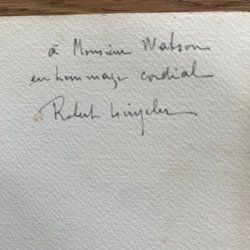 à Monsieur Watson
en hommage cordial
Robert